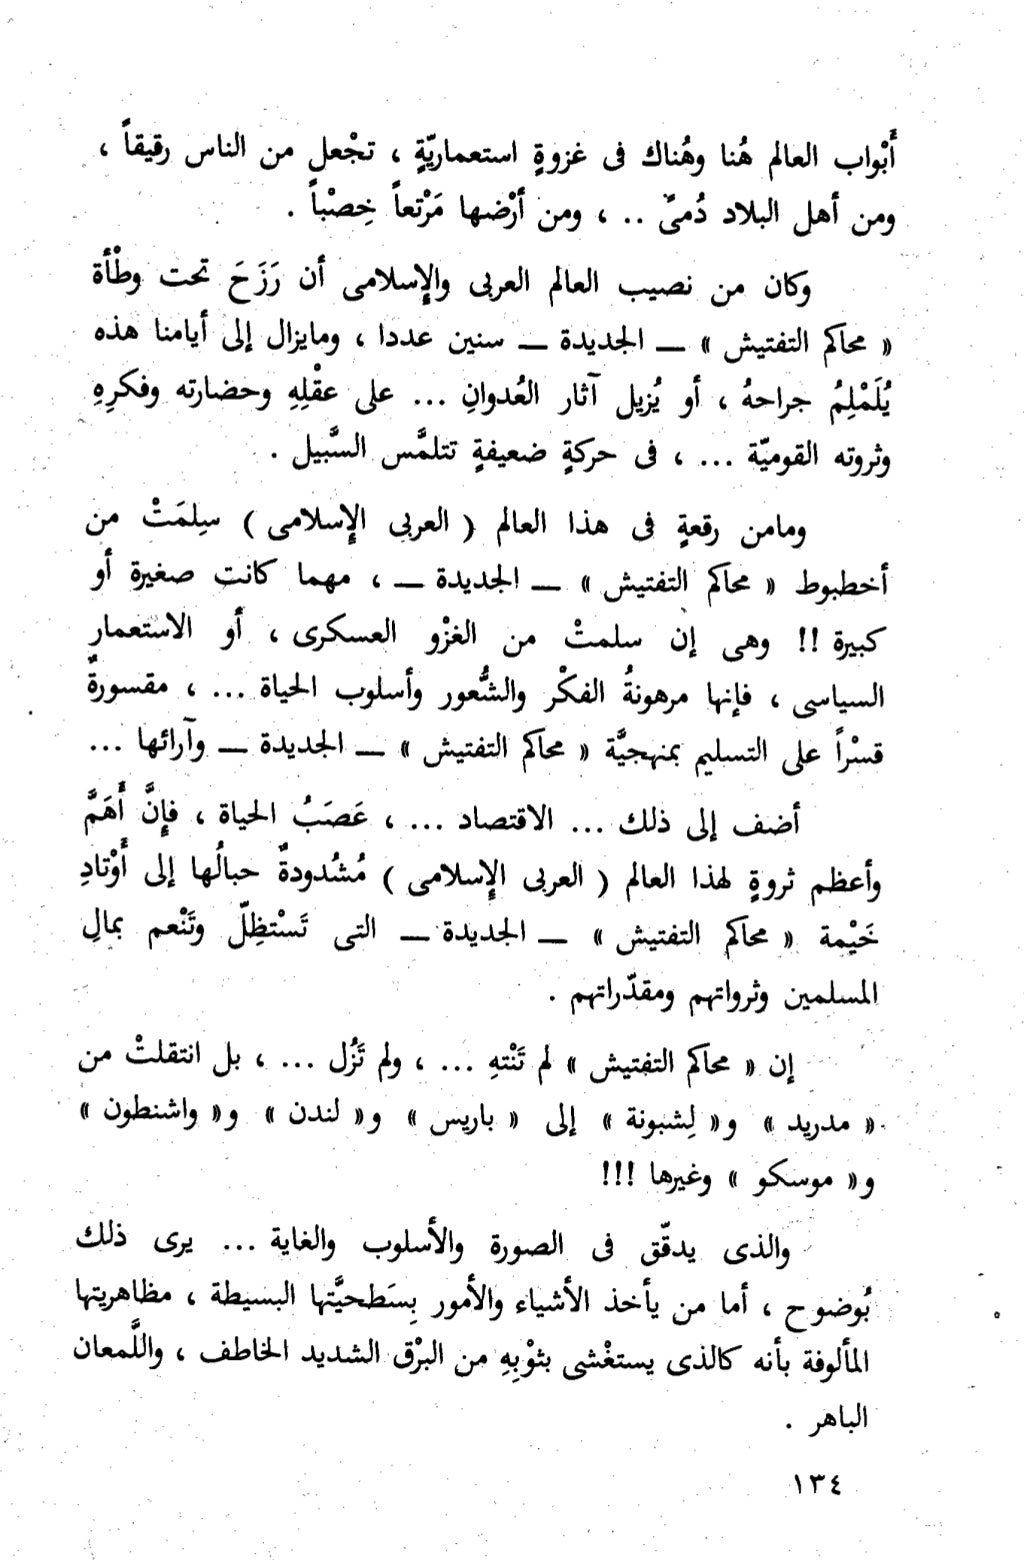 أَبْواب العالم هُنا وهُناك فى غزوةٍ استعماريّةٍ ، تجْعل من الناس رقيقاً ،
ومن أهل البلاد دُمىً .. ، ومن أرْضها مَرْتعاً خِصْباً .
وكان من نصيب العالم العربى والإسلامى أن رَزَحَ تحت وطْأة
« محاكم التفتيش » ــ الجديدة ــ سنين عددا ، ومايزال إلى أيامنا هذه
يُلَمْلِمُ جراحهُ ، أو يُزيل آثار العُدوانِ ... على عقْلِهِ وحضارته وفكرِهِ
وثروته القوميّة ... ، فى حركةٍ ضعيفةٍ تتلمَّس السَّبيل .
ومامن رقعةٍ فى هذا العالم ( العربى الإسلامى ) سِلمَتْ من
أخطبوط « محاكم التفتيش » ــ الجديدة ــ ، مهما كانت صغيرة أو
كبيرة !! وهى إن سلمتْ من الغزْو العسكرى ، أو الاستعمار
السياسى ، فإنها مرهونةُ الفكْر والشُّعور وأسلوب الحياة ... ، مقسورةٌ
قسْراً على التسليم بمنهجيَّة « محاكم التفتيش » ــ الجديدة ــ وآرائها ...
أضف إلى ذلك ... الاقتصاد ... ، عَصَبُ الحياة ، فإِنَّ أَهَمَّ
وأعظم ثروةٍ لهذا العالم ( العربى الإسلامى ) مُشْدودةٌ حبالُها إلى أَوْتادِ
خَيْمة « محاكم التفتيش » ــ الجديدة ــ التى تَسْتظِلّ وتَنْعم بمالِ
المسلمين وثرواتهم ومقدّراتهم .
إن « محاكم التفتيش » لم تَنْتهِ ... ، ولم تَزُل ... ، بل انتقلتْ من
« مدريد » و« لِشبونة » إلى « باريس » و« لندن » و« واشنطون »
و« موسكو » وغيرها !!!
والذى يدقّق فى الصورة والأسلوب والغاية ... يرى ذلك
بُوضوح ، أما من يأخذ الأشياء والأمور بِسَطحيَّتها البسيطة ، مظاهريتها
المألوفة بأنه كالذى يستغْشى بثوْبِهِ من البرْق الشديد الخاطف ، واللَّمعان
الباهر .
١٣٤